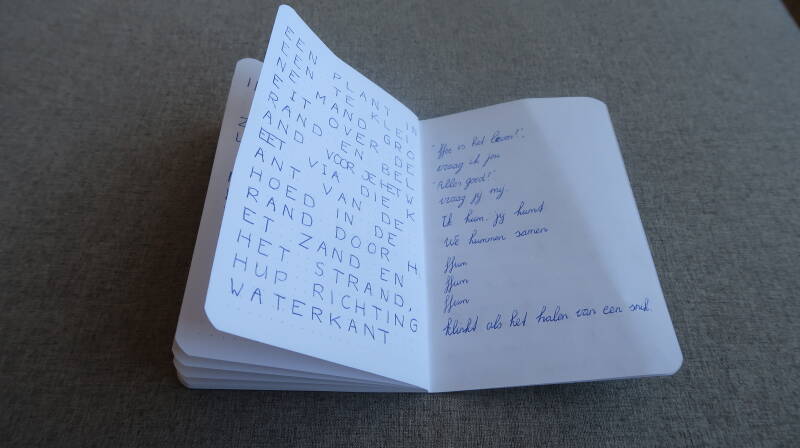 EEN PLANT IN
EEN TE KLEIN
E MAND GRO
EIT OVER DE
RAND EN BEL
AND VOOR JE HET W
EET VIA DIE K
ANT VAN DE
HOED IN DE
RAND DOOR H
ET ZAND EN
HET STRAND,
HUP RICHTING
WATERKANT
"Hoe is het leven?",
vraag ik jou
"Alles goed?"
vraag jij mij.
Ik hum, jij humt
We hummen samen
Hum
Hum
Hum
klinkt als het halen van een snik.